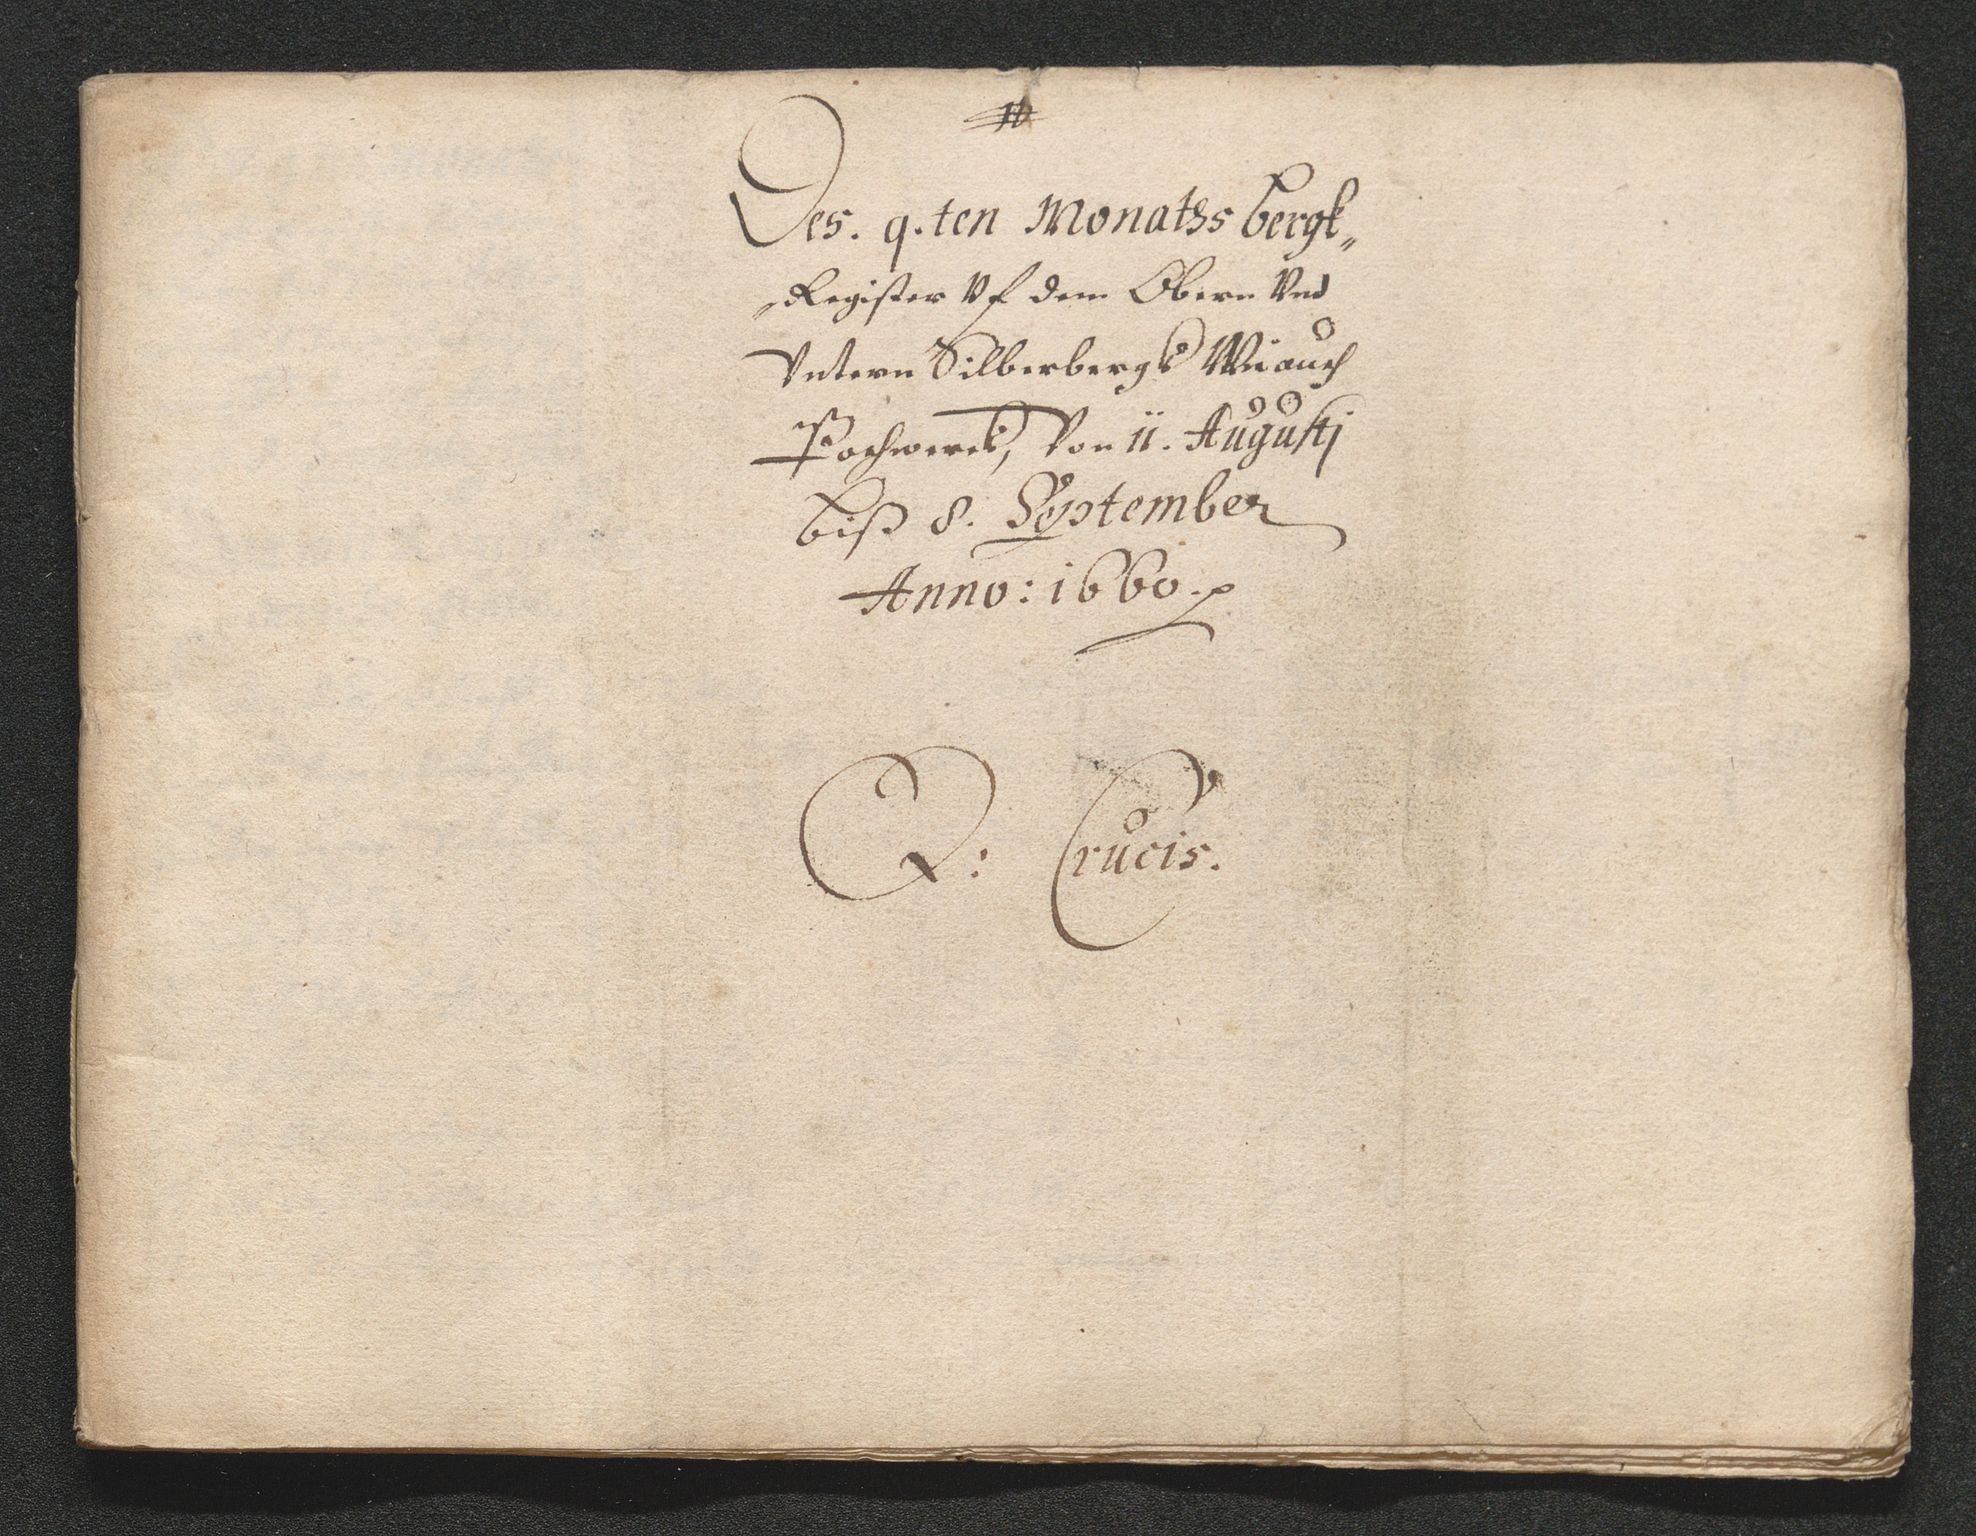 Des. 9.ten Monaths bergk„
„Register Vf dem Obern Vnd
Vntern Silberbergk Wi auch
Pochwerck, Von 11. Augustj
biß 8. September
Anno: 1660.
Q: Crucis.